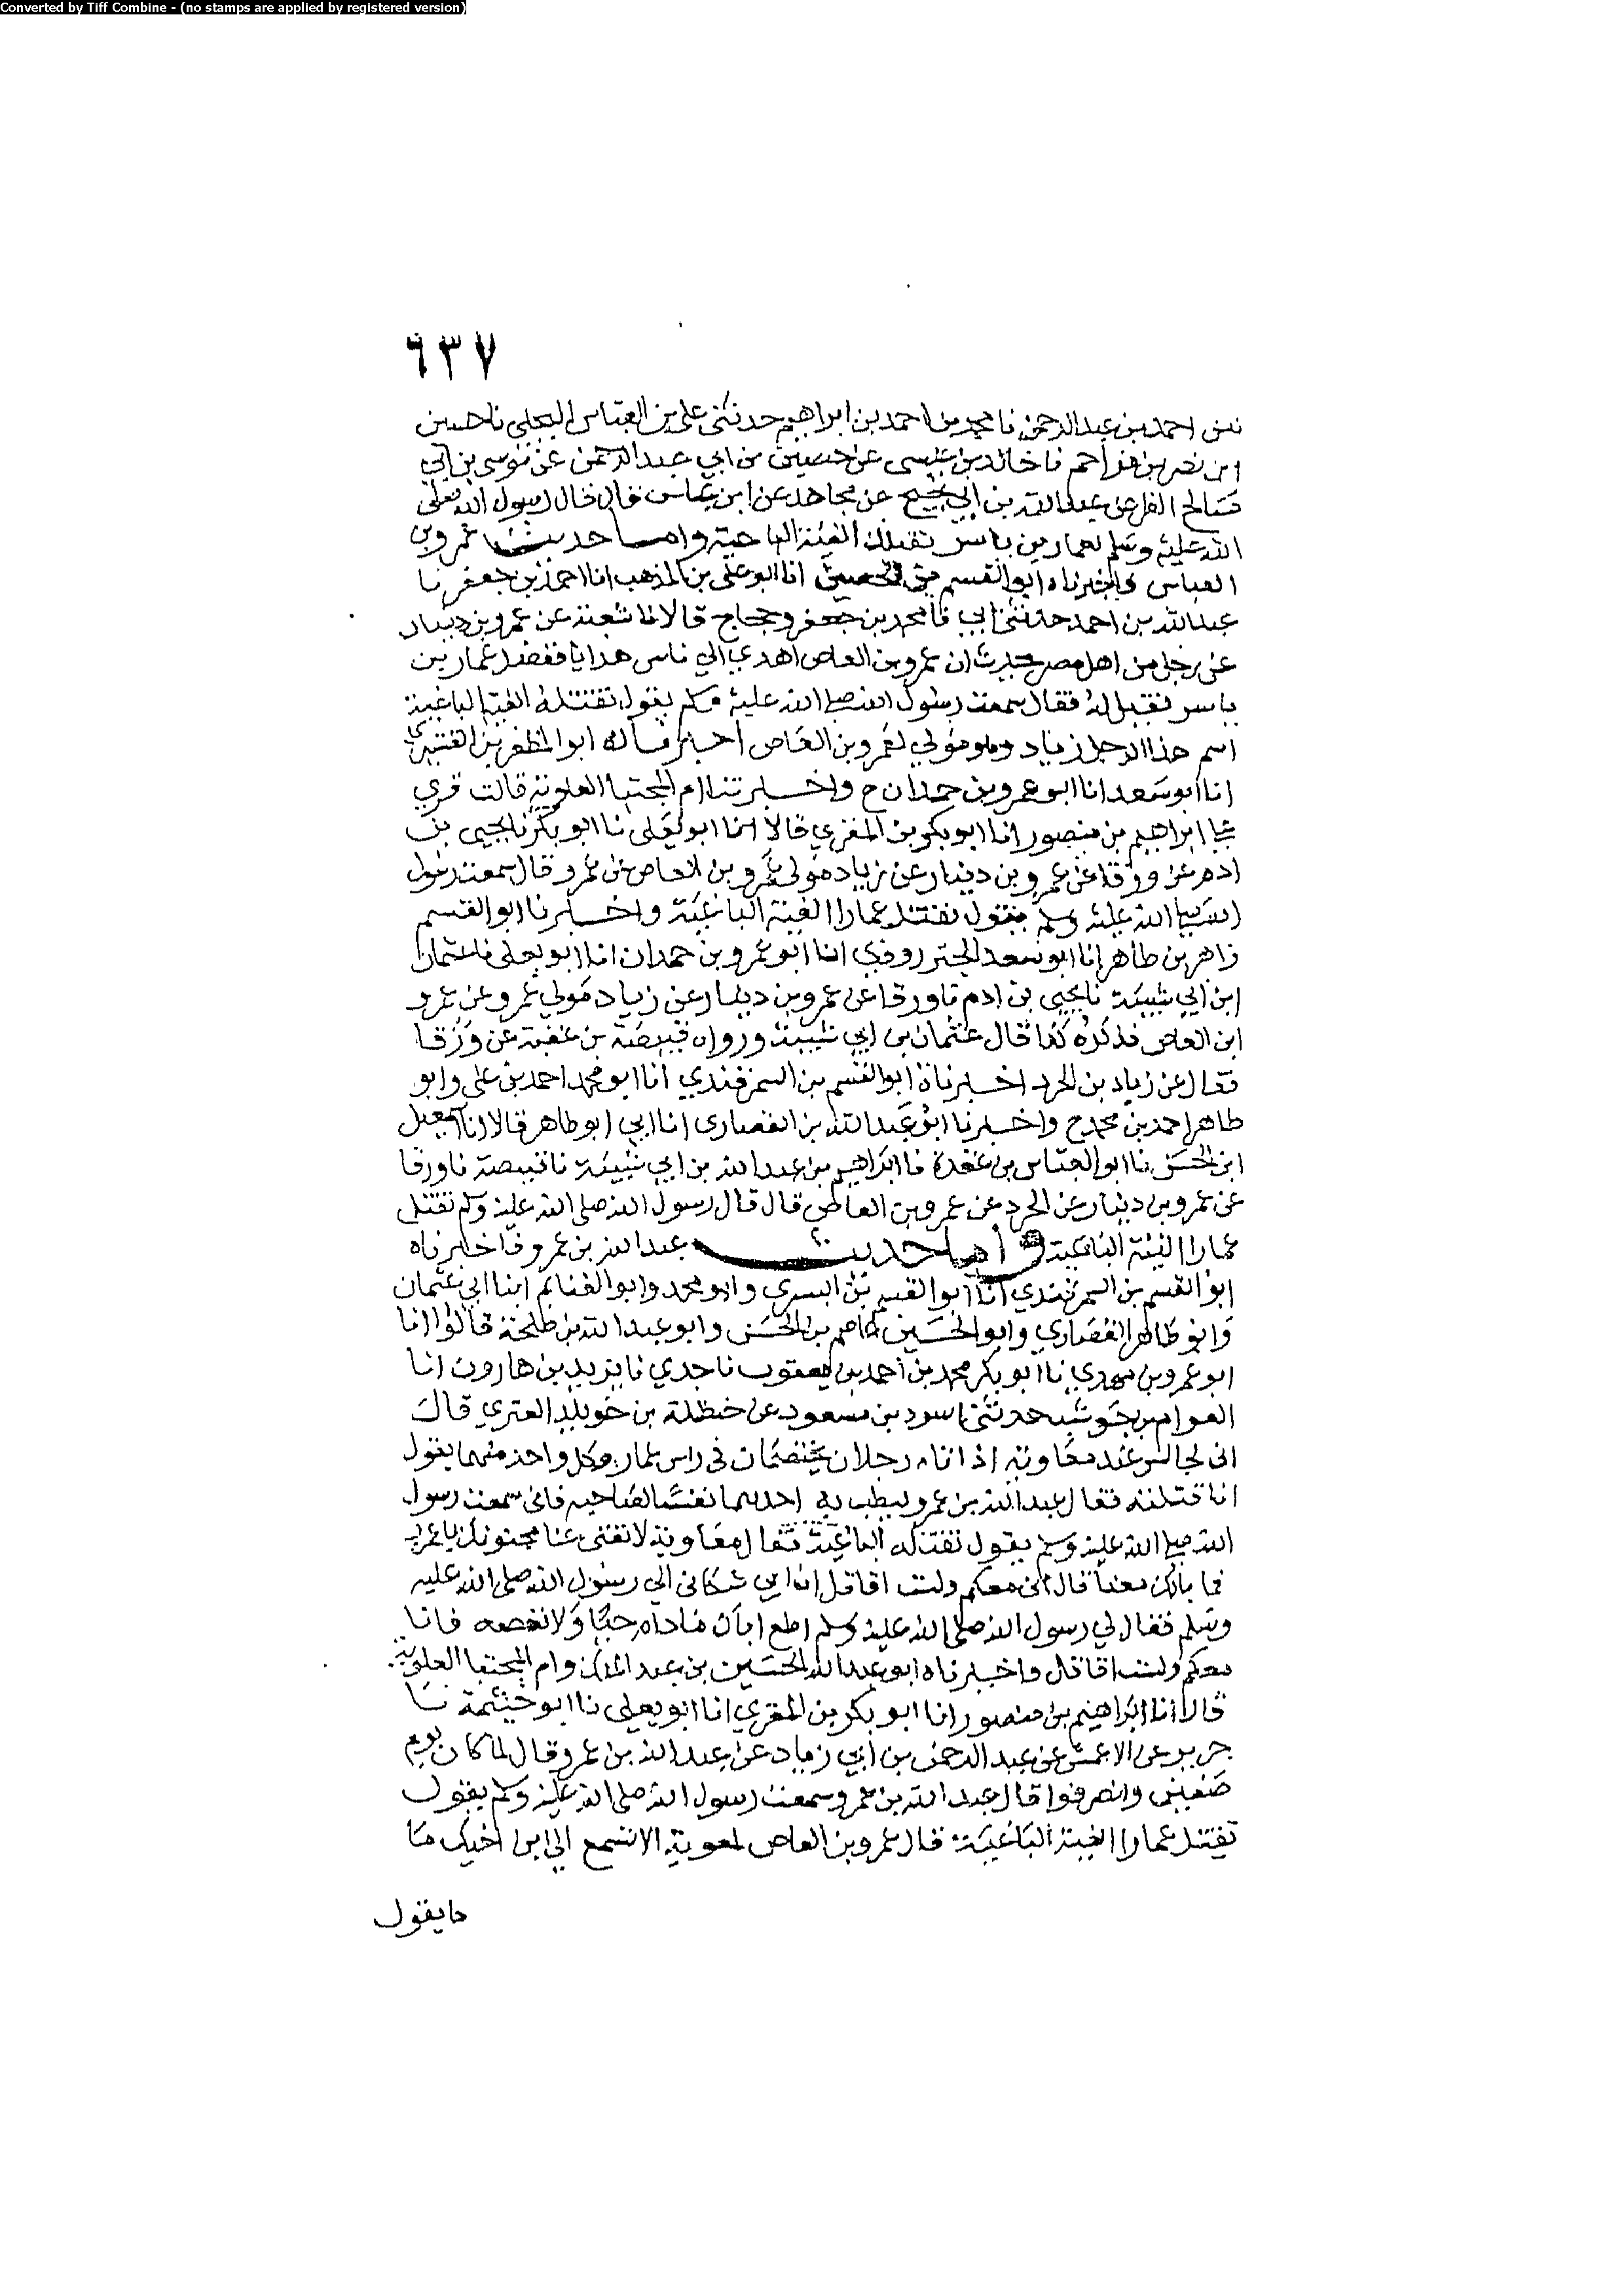 Converted by Tiff Combine - (no stamps are applied by registered version)
٦٣٧
احمد بن عبد الرحمن نا محمد بن احمد بن ابراهيم حدثني علي بن العباس البجلي نا حسين
ابن نصر بن مزاحم نا خالد بن عيسى عن حصين بن ابي عبد الرحمن عن موسى بن ابي
عن عبد الله بن ابي نجيح عن مجاهد عن ابن عباس قال قال رسول الله صلى
الله عليه وسلم لعمار بن ياسر تقتلك الفئة الباغية واما حديث عمرو بن
العباس فاخبرناه ابو القسم بن الحصين انا ابو علي بن المذهب انا احمد بن جعفر نا
عبد الله بن احمد حدثني ابي نا محمد بن جعفر وحجاج قالا نا شعبة عن عمرو بن دينار
عن رجل من اهل مصر يحدث ان عمرو بن العاص اهدي الي ناس هدايا ففضل عمار بن
ياسر فقيل له فقال سمعت رسول الله صلى الله عليه وسلم يقول تقتله الفئة الباغية
اسم هذا الرجل زياد وهو مولي لعمرو بن العاص اخبرناه ابو المظفر بن القشيري
انا ابو سعد انا ابو عمرو بن حمدان ح واخبرتنا ام المجتبا العلوية قالت قري
علي ابراهيم بن منصور انا ابو بكر بن المقري قالا انا ابو يعلى نا ابو بكر نا يحيى بن
ادم عن ورقا عن عمرو بن دينار عن زياد مولى عمرو بن العاص عن عمرو قال سمعت رسول
الله صلى الله عليه وسلم يقول تقتل عمارا الفئة الباغية واخبرنا ابو القسم
زاهر بن طاهر انا ابو سعد الجنزرودي انا ابو عمرو بن حمدان انا ابو يعلى نا عثمان
ابن ابي شيبة نا يحيى بن ادم نا ورقا عن عمرو بن دينار عن زياد مولي عمرو عن عمرو
ابن العاص فذكره كذا قال عثمان بن ابي شيبة ورواه قبيصة بن عقبة عن ورقا
فقال عن زياد بن الحرد اخبرناه ابو القسم بن السمرقندي انا ابو محمد احمد بن علي وابو
طاهر احمد بن محمد ح واخبرنا ابو عبد الله بن القصاري انا ابي ابو طاهر قالا انا اسمعيل
ابن الحسن نا ابو العباس بن عقدة نا ابراهيم بن عبد الله بن ابي شيبة نا قبيصة نا ورقا
عن عمرو بن دينار عن الحرد عن عمرو بن العاص قال قال رسول الله صلى الله عليه وسلم تقتل
عمارا الفئة الباغية واما حديث عبد الله بن عمرو فاخبرناه
ابو القسم بن السمرقندي انا ابو القسم بن البسري وابو محمد وابو الغنايم ابنا ابي عثمان
وابو طاهر القصاري وابو الحسين عاصم بن الحسن وابو عبد الله بن طلحة قالوا انا
ابو عمرو بن مهدي نا ابو بكر محمد بن احمد بن يعقوب نا جدي نا يزيد بن هارون انا
العوام بن حوشب حدثني اسود بن مسعود عن حنظلة بن خويلد العتري قال
اني لجالس عند معاوية اذ اتاه رجلان يختصمان في راس عمار وكل واحد منهما يقول
انا قتلته فقال عبد الله بن عمرو ليطب به احدكما نفسا لصاحبه فاني سمعت رسول
الله صلى الله عليه وسلم يقول تقتله الباغية فقال معاوية لا تغني عنا مجنونك يا عمرو
فما بالك معنا قال اني معكم ولست اقاتل ان ابي شكاني الي رسول الله صلى الله عليه
وسلم فقال لي رسول الله صلى الله عليه وسلم اطع اباك مادام حيا ولا تعصه فانا
معكم ولست اقاتل واخبرناه ابو عبد الله الحسين بن عبد الملك وام المجتبا العلوية
قالا انا ابراهيم بن منصور انا ابو بكر بن المقري انا ابو يعلي نا ابو خيثمة نا
جرير عن الاعمش عن عبد الرحمن بن ابي زياد عن عبد الله بن عمرو قال لما كان يوم
صفين وانصرفوا قال عبد الله بن عمرو سمعت رسول الله صلى الله عليه وسلم يقول
تقتل عمارا الفئة الباغية قال عمرو بن العاص لمعوية الا تسمع الي ابن اخيك ما
ما يقول